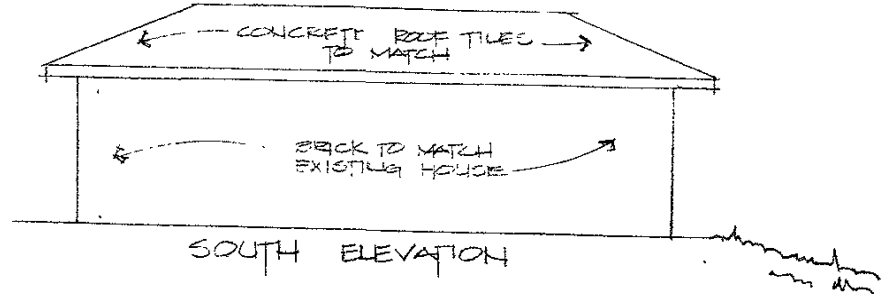 CONCRETE ROOF TILES
TO MATCH
BRICK TO MATCH
EXISTING HOUSE
SOUTH ELEVATION